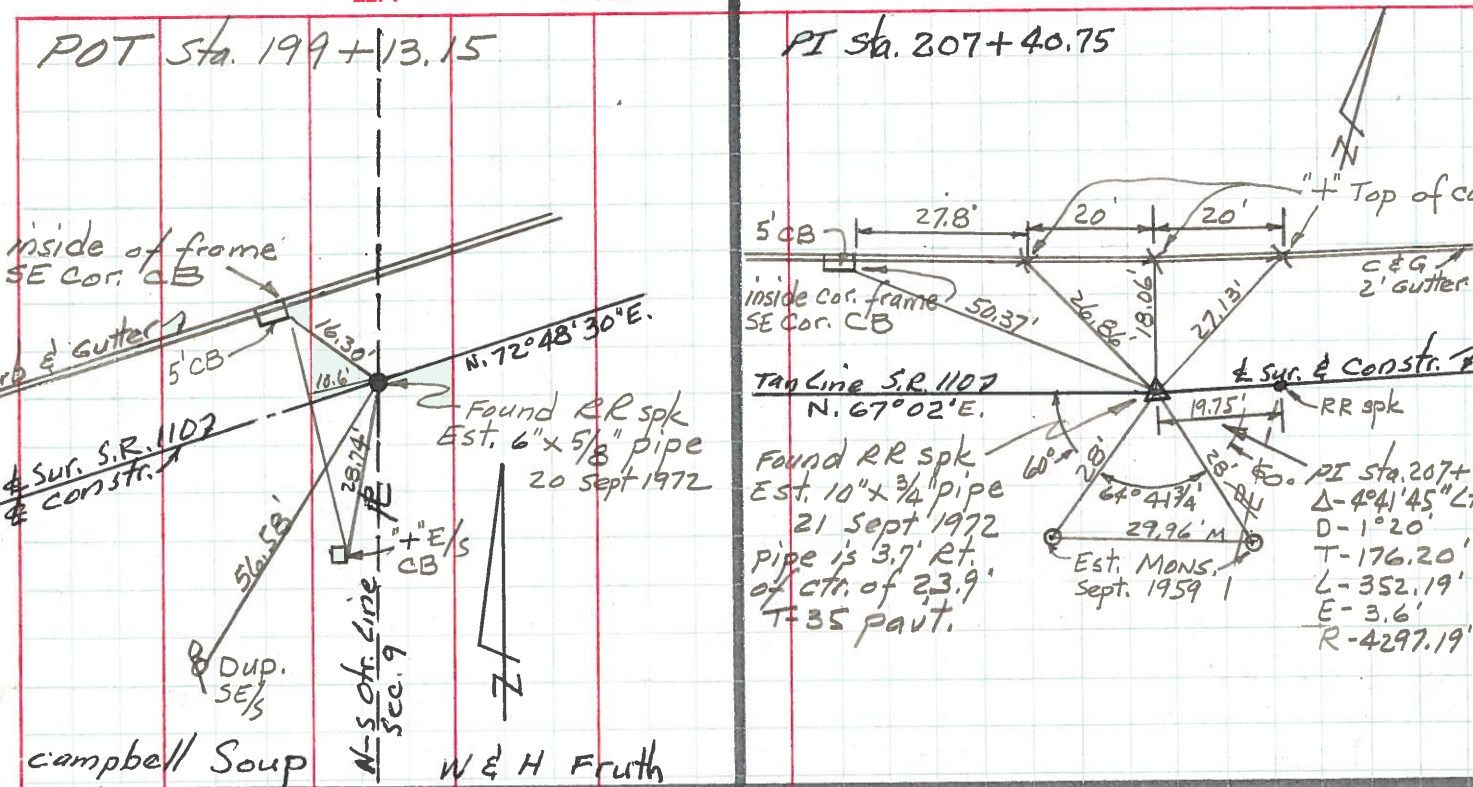 POT Sta. 199+13.15
inside of frame
SE Cor. CB
Gutter
5' CB
16.30'
10.6'
N. 72°48'30"E.
℄ Sur. S.R. 1107
& Constr.
Found RR spk
Est. 6" x 5/8" pipe
20 Sept 1972
28.74'
56.58'
℄
"+" E/s
CB
N-S Qtr. Line
Sec. 9
Dup.
SE/s
N
Campbell Soup
W & H Fruth
PI Sta. 207+40.75
N
"+" Top of
27.8'
20'
20'
5' CB
inside cor. frame
SE Cor. CB
50.37'
26.86'
18.06'
27.13'
C & G
2' Gutter
Tan Line S.R. 1107
N. 67°02'E.
℄ Sur. & Constr.
19.75'
RR spk
Found RR spk
Est. 10" x 3/4" pipe
21 Sept 1972
pipe is 3.7' Rt.
of ctr. of 23.9'
T-35 pav't.
60°
28'
64°41 3/4'
28'
29.96' M
Est. Mons.
Sept. 1959
PI Sta. 207+
Δ-4°41'45"
D-1°20'
T-176.20'
L-352.19'
E-3.6'
R-4297.19'